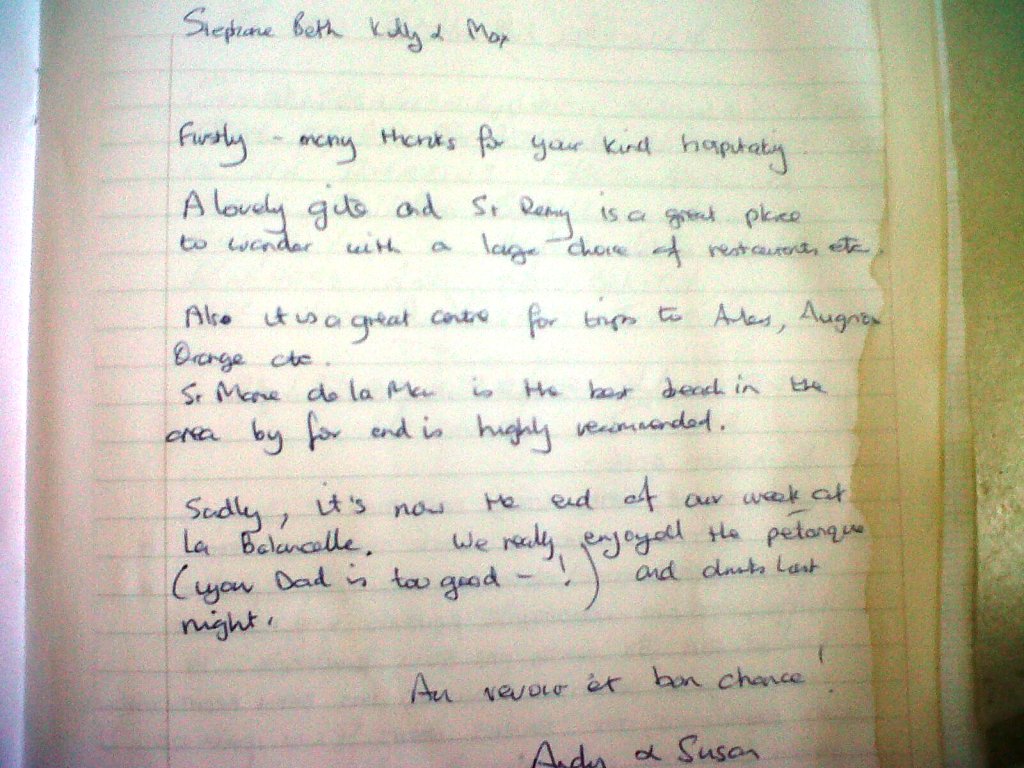 Stephane Beth Kelly & Max
Firstly - many thanks for your kind hospitality.
A lovely gite and St Remy is a great place
to wander with a large choice of restaurants etc.
Also it is a great centre for trips to Arles, Avignon
Orange etc.
St Marie de la Mer is the best beach in the
area by far and is highly recommended.
Sadly, it's now the end of our week at
La Balancelle. We really enjoyed the petanque
(your Dad is too good - !) and drinks last
night.
Au revoir et bon chance!
Andy & Susan